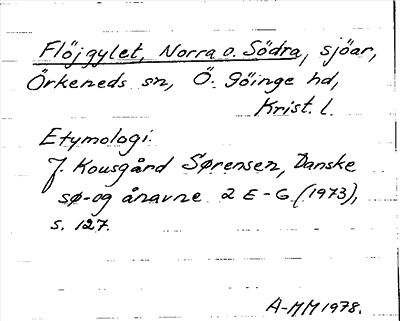 Flöjgylet, Norra o. Södra, sjöar,
Örkeneds sn, Ö. Göinge hd,
Krist. l.
Etymologi:
J. Kousgård Sørensen, Danske
sø- og ånavne 2 E-G (1973),
s. 127.
A-MM 1978.